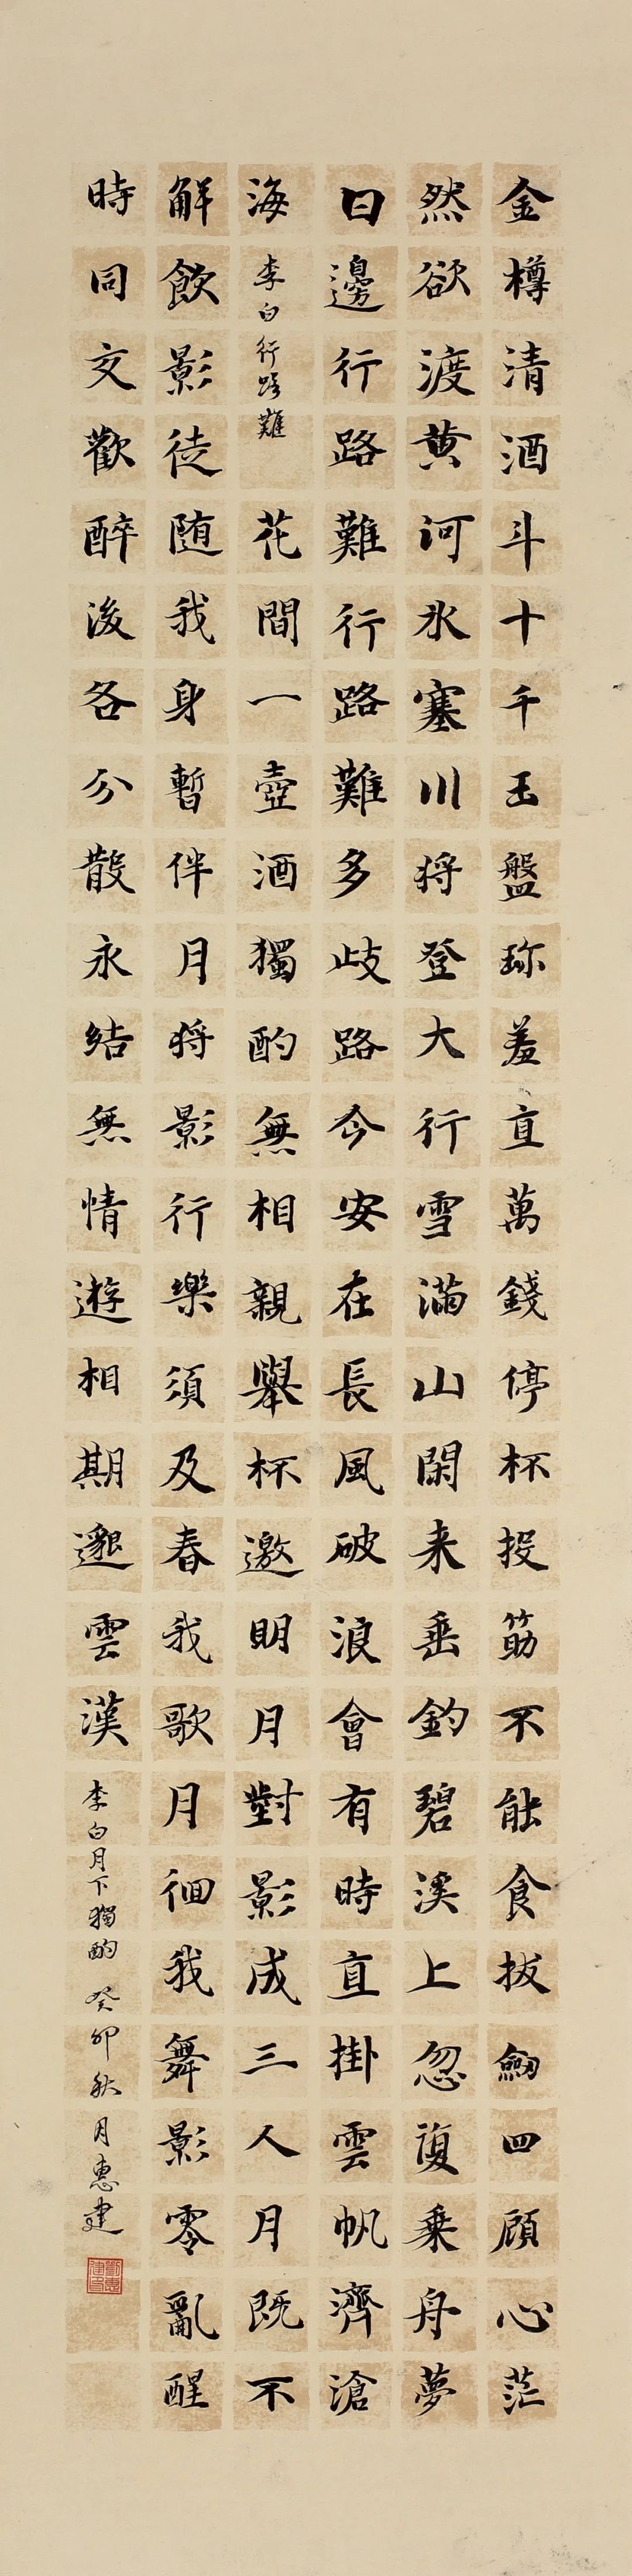 金樽清酒斗十千玉盤珎羞直萬錢停杯投筯不能食拔劒四顧心茫
然欲渡黄河氷塞川将登大行雪滿山閑来垂釣碧溪上忽復乗舟夢
日邊行路難行路難多歧路今安在長風破浪會有時直掛雲帆濟滄
海 李白行路難 花間一壺酒獨酌無相親舉杯邀明月對影成三人月既不
解飲影徒随我身暫伴月将影行樂須及春我歌月徊我舞影零亂醒
時同交歡醉後各分散永結無情遊相期邈雲漢 李白月下獨酌 癸卯秋月惠建